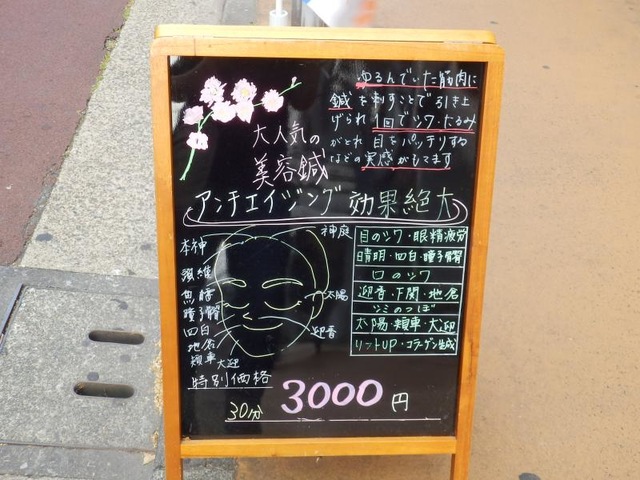 ゆるんでいた筋肉に
鍼を刺すことで引き上
げられ1回でシワ・たるみ
がとれ目をパッチリする
などの実感がもてます
大人気の
美容鍼
アンチエイジング効果絶大
本神
神庭
魚腰
瞳子髎
四白
地倉
頬車
大迎
太陽
迎香
目のシワ・眼精疲労
晴明・四白・瞳子髎
口のシワ
迎香・下関・地倉
シミのつぼ
太陽・頬車・大迎
リフトUP・コラーゲン生成
特別価格
30分 3000円